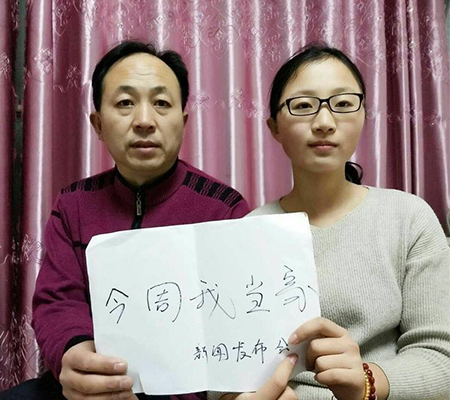 今周我当家
新闻发布会